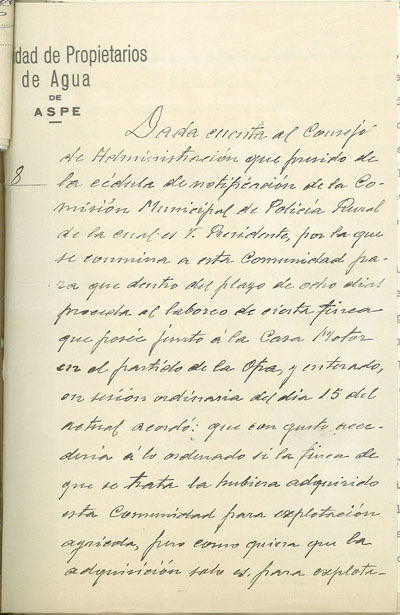 idad de Propietarios
de Agua
DE
ASPE
8
Dada cuenta al Consejo
de Administración que presido de
la cédula de notificación de la Co-
misión Municipal de Policía Rural
de la cual es V. Presidente, por la que
se conmina a esta Comunidad pa-
ra que dentro del plazo de ocho dias
proceda al laboreo de cierta finca
que posée junto á la Casa Motor
en el partido de la Opa, y enterado,
en sesión ordinaria del dia 15 del
actual acordó: que con gusto acce-
deria á lo ordenado si la finca de
que se trata la hubiera adquirido
esta Comunidad para explotación
agricola, pero como quiera que la
adquisición solo es, para explota-